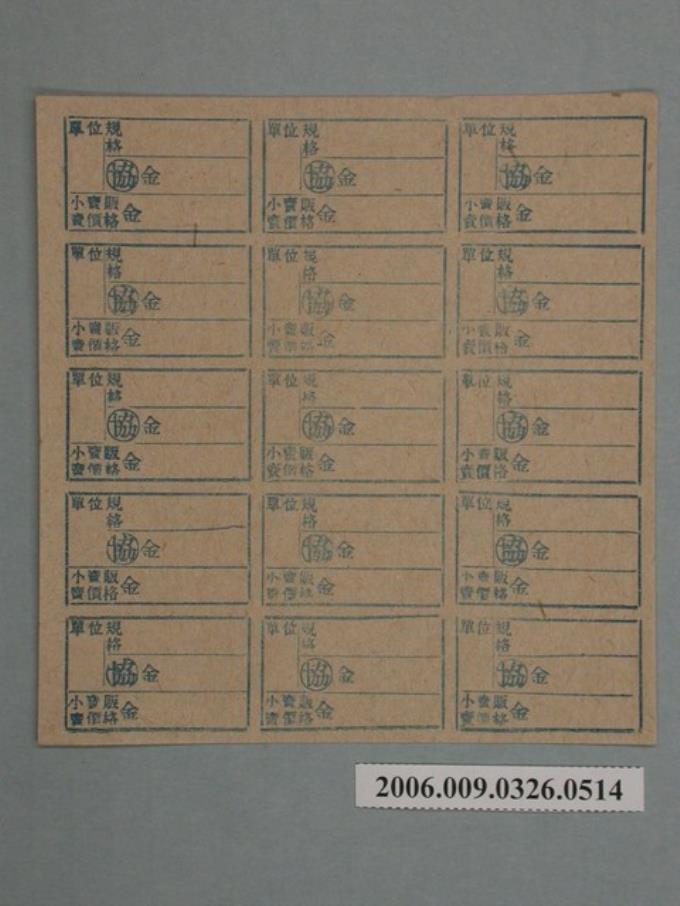 單位規
格
協 金
小賣販
賣價格 金
單位規
格
協 金
小賣販
賣價格 金
單位規
格
協 金
小賣販
賣價格 金
單位規
格
協 金
小賣販
賣價格 金
單位規
格
協 金
小賣販
賣價格 金
單位規
格
協 金
小賣販
賣價格 金
單位規
格
協 金
小賣販
賣價格 金
單位規
格
協 金
小賣販
賣價格 金
單位規
格
協 金
小賣販
賣價格 金
單位規
格
協 金
小賣販
賣價格 金
單位規
格
協 金
小賣販
賣價格 金
單位規
格
協 金
小賣販
賣價格 金
單位規
格
協 金
小賣販
賣價格 金
單位規
格
協 金
小賣販
賣價格 金
單位規
格
協 金
小賣販
賣價格 金
2006.009.0326.0514